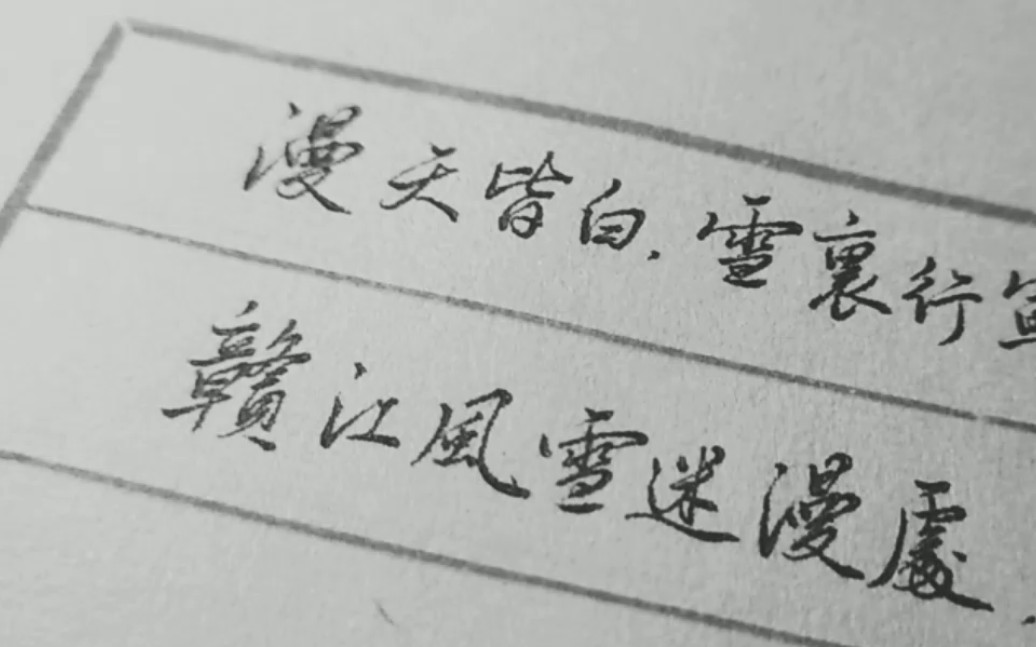 漫天皆白.雪裏行
贛江風雪迷漫處.